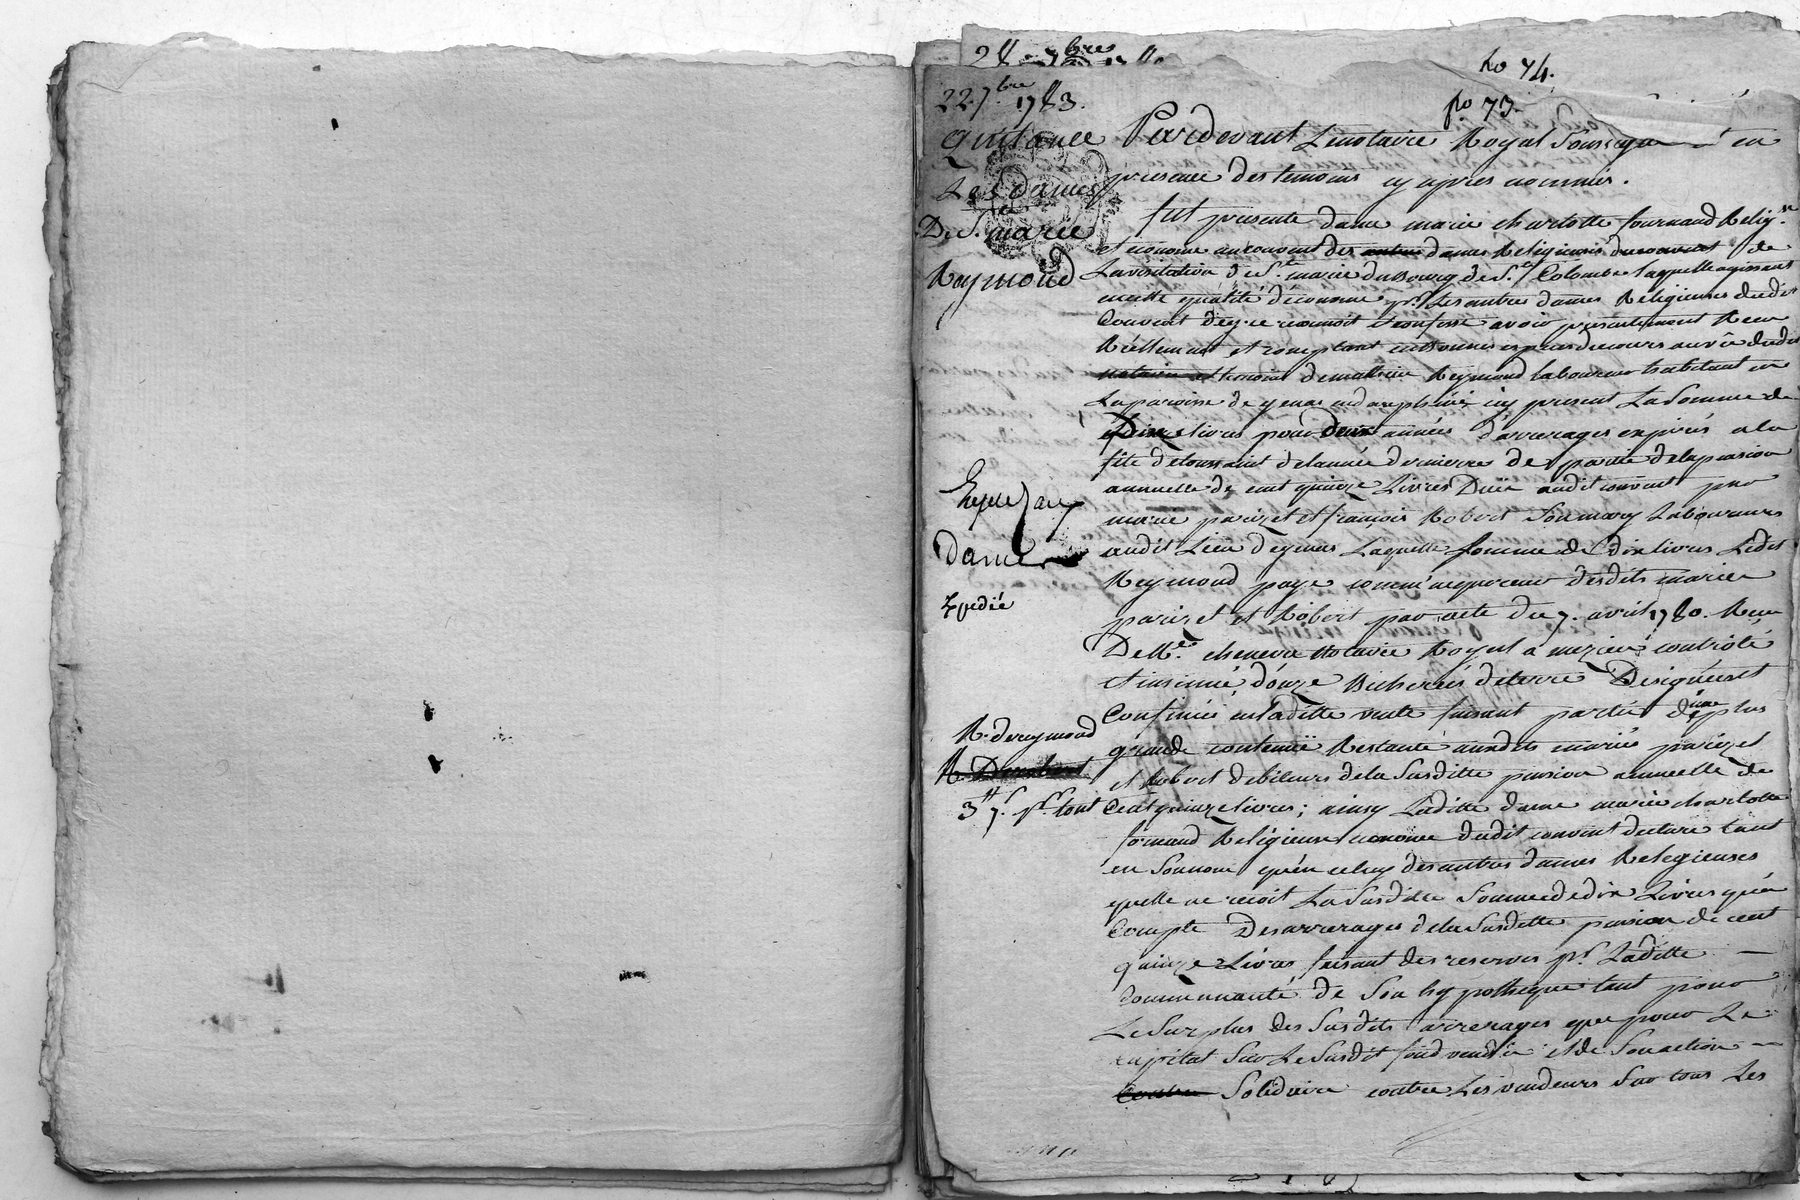 28 7bre 17
no 74.
22. 7bre 1783.
po 73.
Quittance
Les dames
de
De Ste marie
a
Reymond
Pardevant Lenotaire Royal Soussigné et en
présence des temoins cy apres nommés.
fut presente dame marie charlotte fournand Relig.se
et econome au couvent des autres dames Religieuses du couvent de
La visitation de Ste marie du Bourg de Ste Colombe laquelle agissant
en cette qualité d'econome pr. Les autres dames Religieuses dudit
Couvent de gré reconnoit et confesse avoir presentement Recu
Réellement et comptant en bonnes especes de cours au vû dudit
notaire et temoins de mathieu Reymond laboureur habitant en
La paroisse de genas en dauphiné icy present La Somme de
Dix Livres pour deux années d'arrerages expirés a la
fête de toussaint de l'année derniere de partie de la pension
annuelle de cent quinze Livres Duë audit couvent par
marie parizet et françois Robert Son mary Laboureurs
audit Lieu de genas Laquelle Somme de dix livres Ledit
Reymond paye comme acquereur desdits mariés
parizet et Robert par acte du 7. avril 1780. Recu
De Me. chenevas Notaire Royal a mezieu controlé
et insinué, d'onze Bicherées de terre Designées et
Confinées en ladite vente faisant partie d'une plus
grande contenuë Restante auxdits mariés parizet
et Robert debiteurs de la Susditte pension annuelle de
Cent quinze livres; ainsy Laditte dame marie charlotte
fornand Religieuse econome dudit couvent declare tant
en Son nom qu'en celuy des autres dames Relegieuses
quelle ne reçoit La Susditte Somme de dix Livres qu'à
Compte Des arrerages de la Susditte pension de cent
quinze Livres faisant des reserves pr. Laditte —
Communauté de Son hypotheque tant pour
Le Surplus des Susdits arrerages que pour Le
capital Sur Le Susdit fond vendu et de Son action —
Contre Solidaire contre Les vendeurs Sur tous Les
Dame
Expedié
R. de reymond
3tt 7s. pr. tout